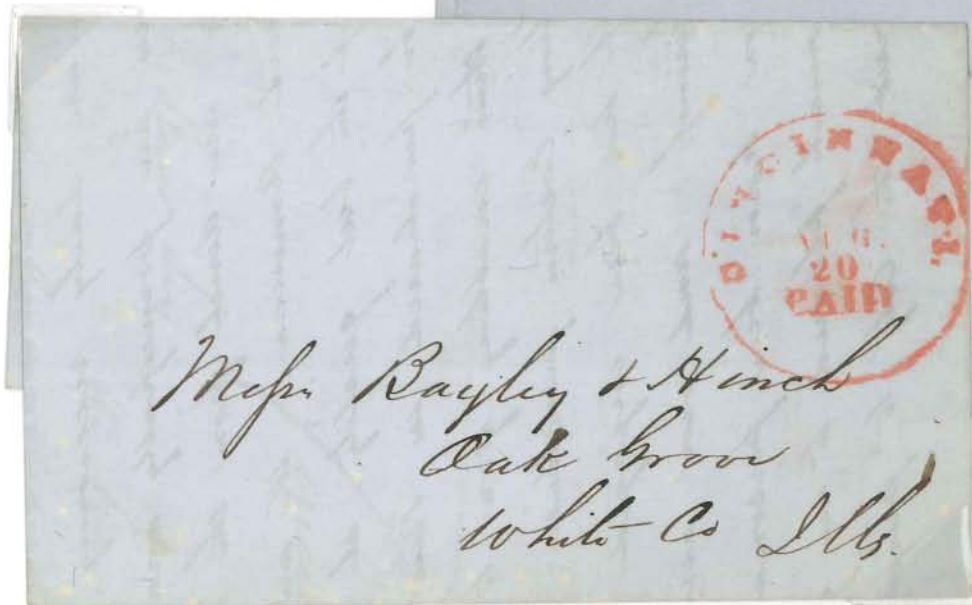 CINCINNATI.
AUG.
20
PAID
Messrs Bayley & Hinch
Oak Grove
White Co Ills.